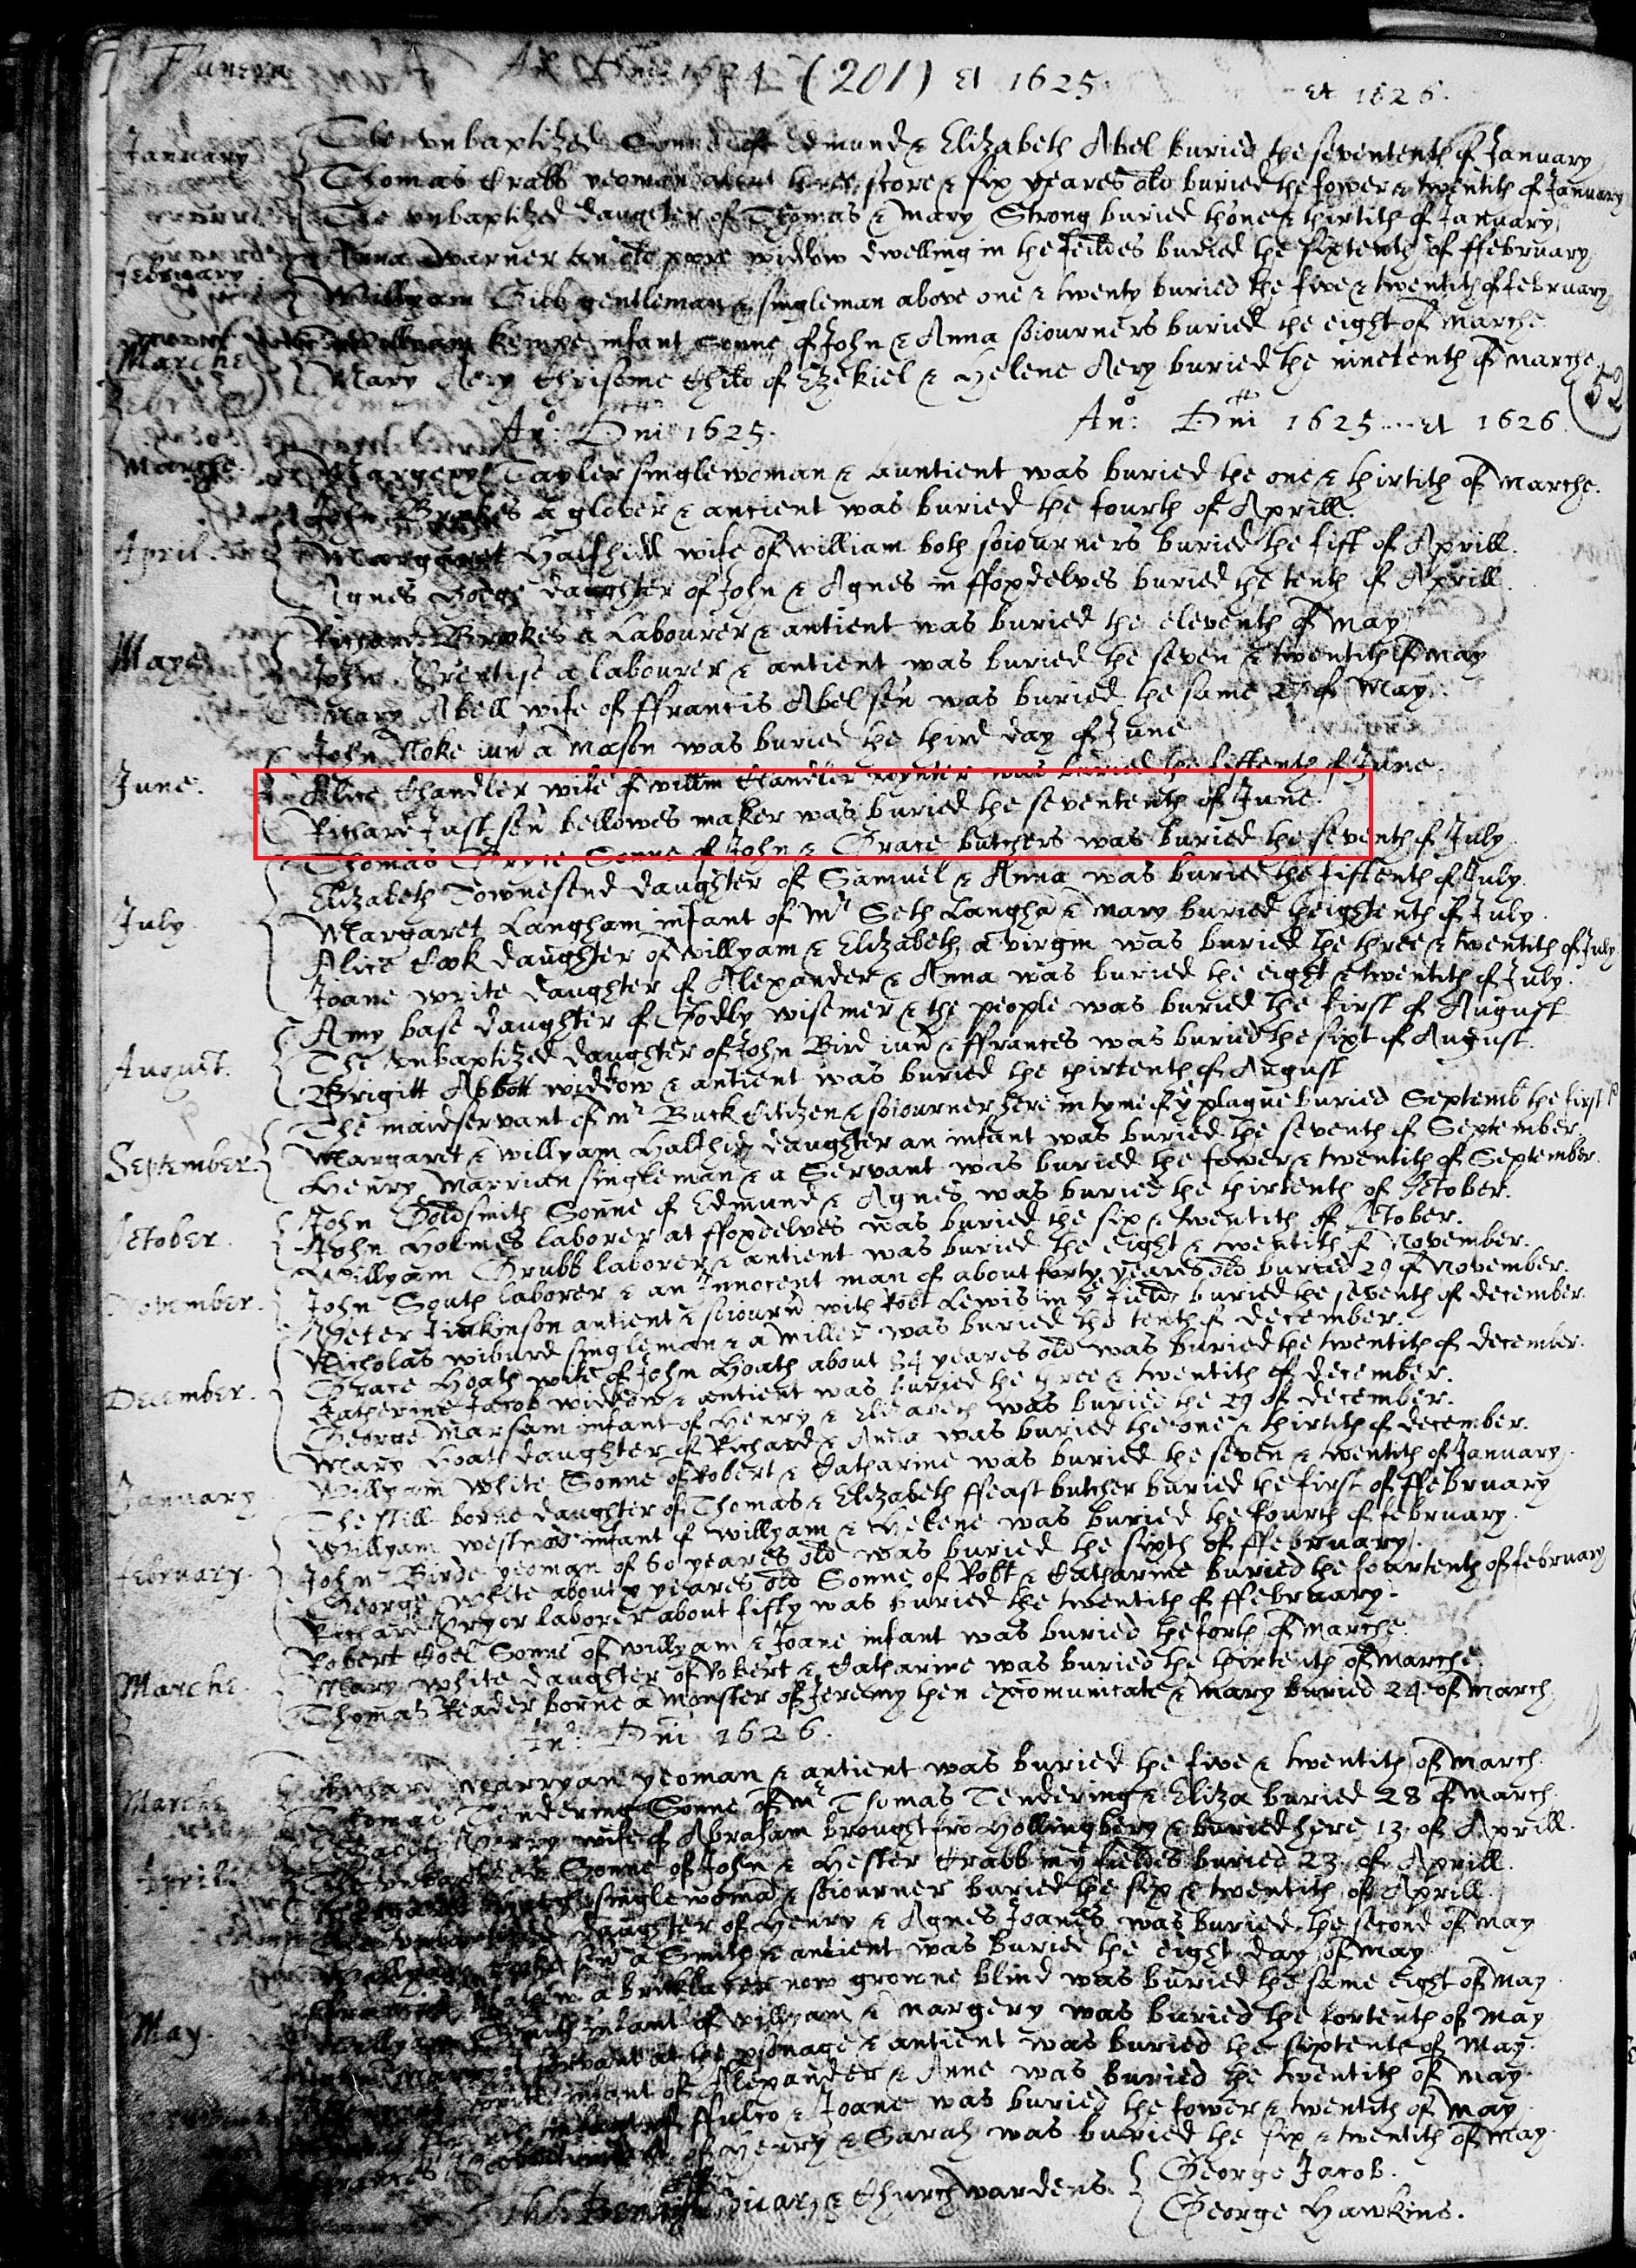 Funera An Dni 1624 (201) et 1625. et 1626.
January The vnbaptized Sonne of Edmund & Elizabeth Abel buried the sevententh of January
Thomas Crabb yeoman about three score & six yeares old buried the fower & twentith of January
The vnbaptized daughter of Thomas & Mary Strong buried thone & thirtith of January
Anna Warner an old pore widdow dwelling in the feildes buried the sixtenth of ffebruary
february Willyam Gibb gentleman & singleman above one & twenty buried the five & twentith of february
Willyam Kempe infant Sonne of John & Anna soiourners buried the eight of Marche
Marche Mary Aery Chrisome Child of Ezekiel & Helene Aery buried the ninetenth of Marche.
52
An: Dni 1625. An: Dni 1625....et 1626.
Marche Margery Tayler singlewoman & auntient was buried the one & thirtith of Marche.
John Brokes a glover & antient was buried the fourth of Aprill.
April. Margaret Halfhidd wife of William both soiourners buried the fift of Aprill.
Agnes Hodge daughter of John & Agnes in ffoxdelves buried the tenth of Aprill.
Richard Brokes a Labourer & antient was buried the eleventh of May
Maye John Prentise a labourer & antient was buried the seven & twentith of may
Mary Abell wife of ffrancis Abel sen was buried the same 27 of May.
John Noke iun a Mason was buried the third day of June
June. Alice Chandler wife of Willm Chandler was buried the fiftenth of June.
Richard Just sen bellowes maker was buried the sevententh of June.
Thomas Bryce Sonne of John & Grace butchers was buried the seventh of July
Elizabeth Townesend daughter of Samuel & Anna was buried the fiftenth of July.
July. Margaret Langham infant of Mr Seth Langha & Mary buried theightenth of July.
Alice Cook daughter of Willyam & Elizabeth, a virgin was buried the three & twentith of July
Joane Write daughter of Alexander & Anna was buried the eight & twentith of July.
Amy base daughter of Godly wisemer & the people was buried the first of August
The vnbaptized daughter of John Bird iun & ffrances was buried the sixt of August.
August. Brigitt Abbott widdow & antient was buried the thirtenth of August
The maidservant of Mr Buck Citizen & soiourner here in tyme of ye plague buried Septemb the first
Margaret & Willyam Halfhid daughter an infant was buried the seventh of September.
September. Henry Marrian singleman & a Servant was buried the fower & twentith of September.
John Goldsmith Sonne of Edmund & Agnes was buried the thirtenth of October.
October. John Holmes laborer at ffoxdelves was buried the six & twentith of October.
Willyam Grubb laborer & antient was buried the eight & twentith of November.
November. John South laborer & an Innocent man of about forty yeares old buried 29 of November.
Peter Jinkinson antient & soiournd with Robt Lewis in ye field buried the seventh of december.
Nicholas Wiburd singleman & a Miller was buried the tenth of december.
Grace Hoath wife of John Hoath about 34 yeares old was buried the twentith of december.
December. Catherine Jacob widdow & antient was buried the three & twentith of december.
George Marsam infant of Henry & Elizabeth was buried the 29 of december.
Mary Hoath daughter of Richard & Anna was buried the one & thirtith of december.
January Willyam White Sonne of Robert & Catharine was buried the seven & twentith of January.
The still borne daughter of Thomas & Elizabeth ffeast butcher buried the first of ffebruary
Willyam Westwod infant of Willyam & Helene was buried the fourth of february.
february. John Birde yeoman of 60 yeares old was buried the sixth of ffebruary.
George White about yeares old Sonne of Robt & Catharine buried the fourtenth of february
Richard Pryor laborer about fifty was buried the twentith of ffebruary.
Robert Joel Sonne of Willyam & Joane infant was buried the forth of Marche.
Marche. Mary White daughter of Robert & Catharine was buried the thirtenth of Marche.
Thomas Reader borne a monster of Jeremy then excomunicate & Mary buried 24 of March
An: Dni 1626.
March Richard Marryan yeoman & antient was buried the five & twentith of March.
Thomas Tendering Sonne of Mr Thomas Tendering & Eliza buried 28 of March.
Elizabeth wife of Abraham brought fro Hollingbery & buried here 13. of Aprill.
April. The vnbaptized Sonne of John & Hester Crabb in ye fieldes buried 23. of Aprill.
singlewoma & soiourner buried the six & twentith of Aprill.
daughter of Henry & Agnes Joanes was buried the second of May
Willyam sen a Smith & antient was buried the eight day of May
a bricklayer now growne blind was buried the same eight of May
May. Willyam Smith infant of Willyam & Margery was buried the fortenth of May
servant at the psonage & antient was buried the sixtente of May.
infant of Alexander & Anne was buried the twentith of May.
of ffulco & Joane was buried the fower & twentith of May
of Henry & Sarah was buried the six & twentith of May.
vicar, & Churchwardens. George Jacob.
George Hawkins.